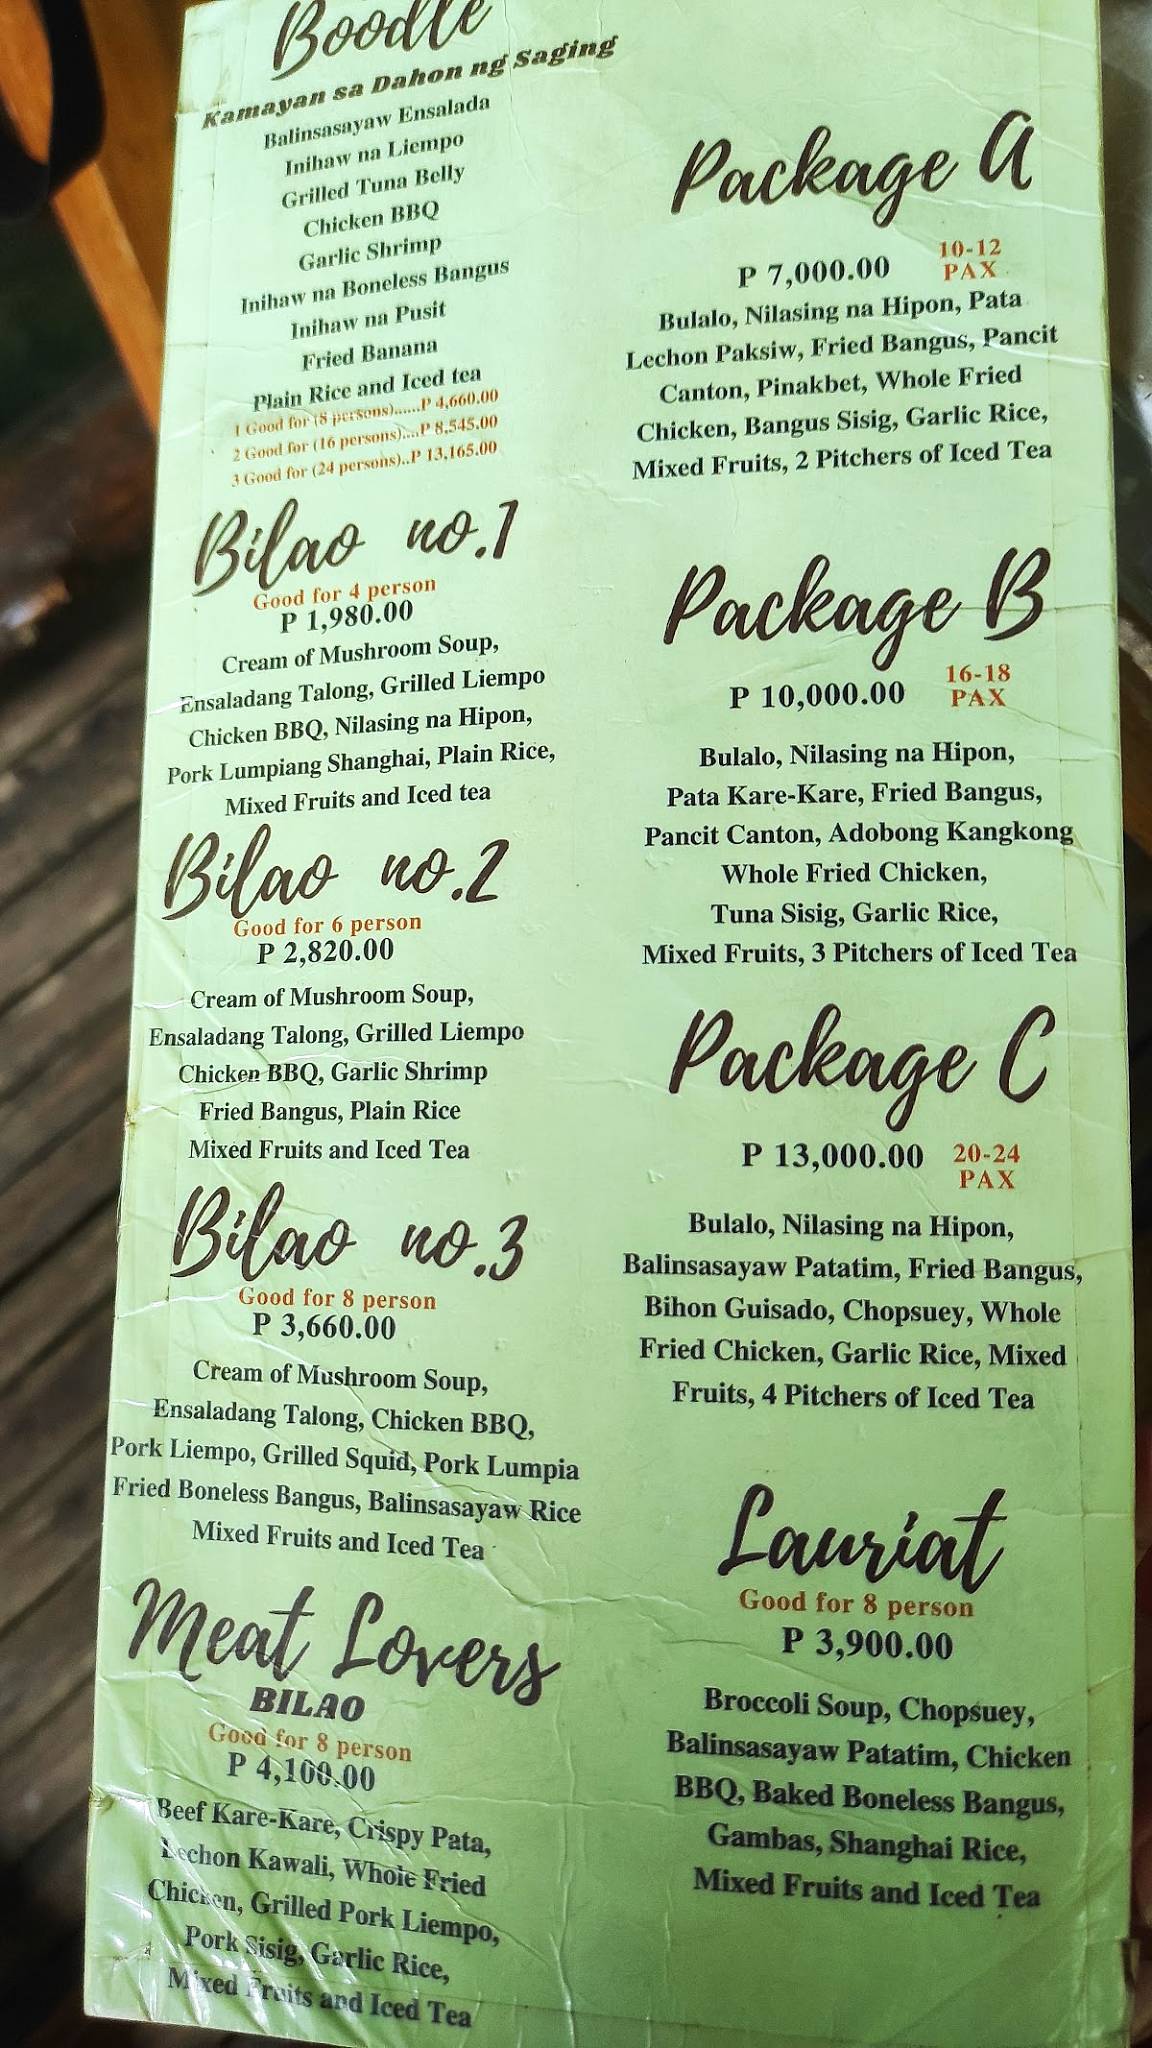 Boodle
Kamayan sa Dahon ng Saging
Balinsasayaw Ensalada
Inihaw na Liempo
Grilled Tuna Belly
Chicken BBQ
Garlic Shrimp
Inihaw na Boneless Bangus
Inihaw na Pusit
Fried Banana
Plain Rice and Iced tea
1 Good for (8 persons)......P 4,660.00
2 Good for (16 persons)....P 8,545.00
3 Good for (24 persons)..P 13,165.00
Bilao no.1
Good for 4 person
P 1,980.00
Cream of Mushroom Soup,
Ensaladang Talong, Grilled Liempo
Chicken BBQ, Nilasing na Hipon,
Pork Lumpiang Shanghai, Plain Rice,
Mixed Fruits and Iced tea
Bilao no.2
Good for 6 person
P 2,820.00
Cream of Mushroom Soup,
Ensaladang Talong, Grilled Liempo
Chicken BBQ, Garlic Shrimp
Fried Bangus, Plain Rice
Mixed Fruits and Iced Tea
Bilao no.3
Good for 8 person
P 3,660.00
Cream of Mushroom Soup,
Ensaladang Talong, Chicken BBQ,
Pork Liempo, Grilled Squid, Pork Lumpia
Fried Boneless Bangus, Balinsasayaw Rice
Mixed Fruits and Iced Tea
Meat Lovers
BILAO
Good for 8 person
P 4,100.00
Beef Kare-Kare, Crispy Pata,
Lechon Kawali, Whole Fried
Chicken, Grilled Pork Liempo,
Pork Sisig, Garlic Rice,
Mixed Fruits and Iced Tea
Package A
P 7,000.00 10-12
PAX
Bulalo, Nilasing na Hipon, Pata
Lechon Paksiw, Fried Bangus, Pancit
Canton, Pinakbet, Whole Fried
Chicken, Bangus Sisig, Garlic Rice,
Mixed Fruits, 2 Pitchers of Iced Tea
Package B
P 10,000.00 16-18
PAX
Bulalo, Nilasing na Hipon,
Pata Kare-Kare, Fried Bangus,
Pancit Canton, Adobong Kangkong
Whole Fried Chicken,
Tuna Sisig, Garlic Rice,
Mixed Fruits, 3 Pitchers of Iced Tea
Package C
P 13,000.00 20-24
PAX
Bulalo, Nilasing na Hipon,
Balinsasayaw Patatim, Fried Bangus,
Bihon Guisado, Chopsuey, Whole
Fried Chicken, Garlic Rice, Mixed
Fruits, 4 Pitchers of Iced Tea
Lauriat
Good for 8 person
P 3,900.00
Broccoli Soup, Chopsuey,
Balinsasayaw Patatim, Chicken
BBQ, Baked Boneless Bangus,
Gambas, Shanghai Rice,
Mixed Fruits and Iced Tea